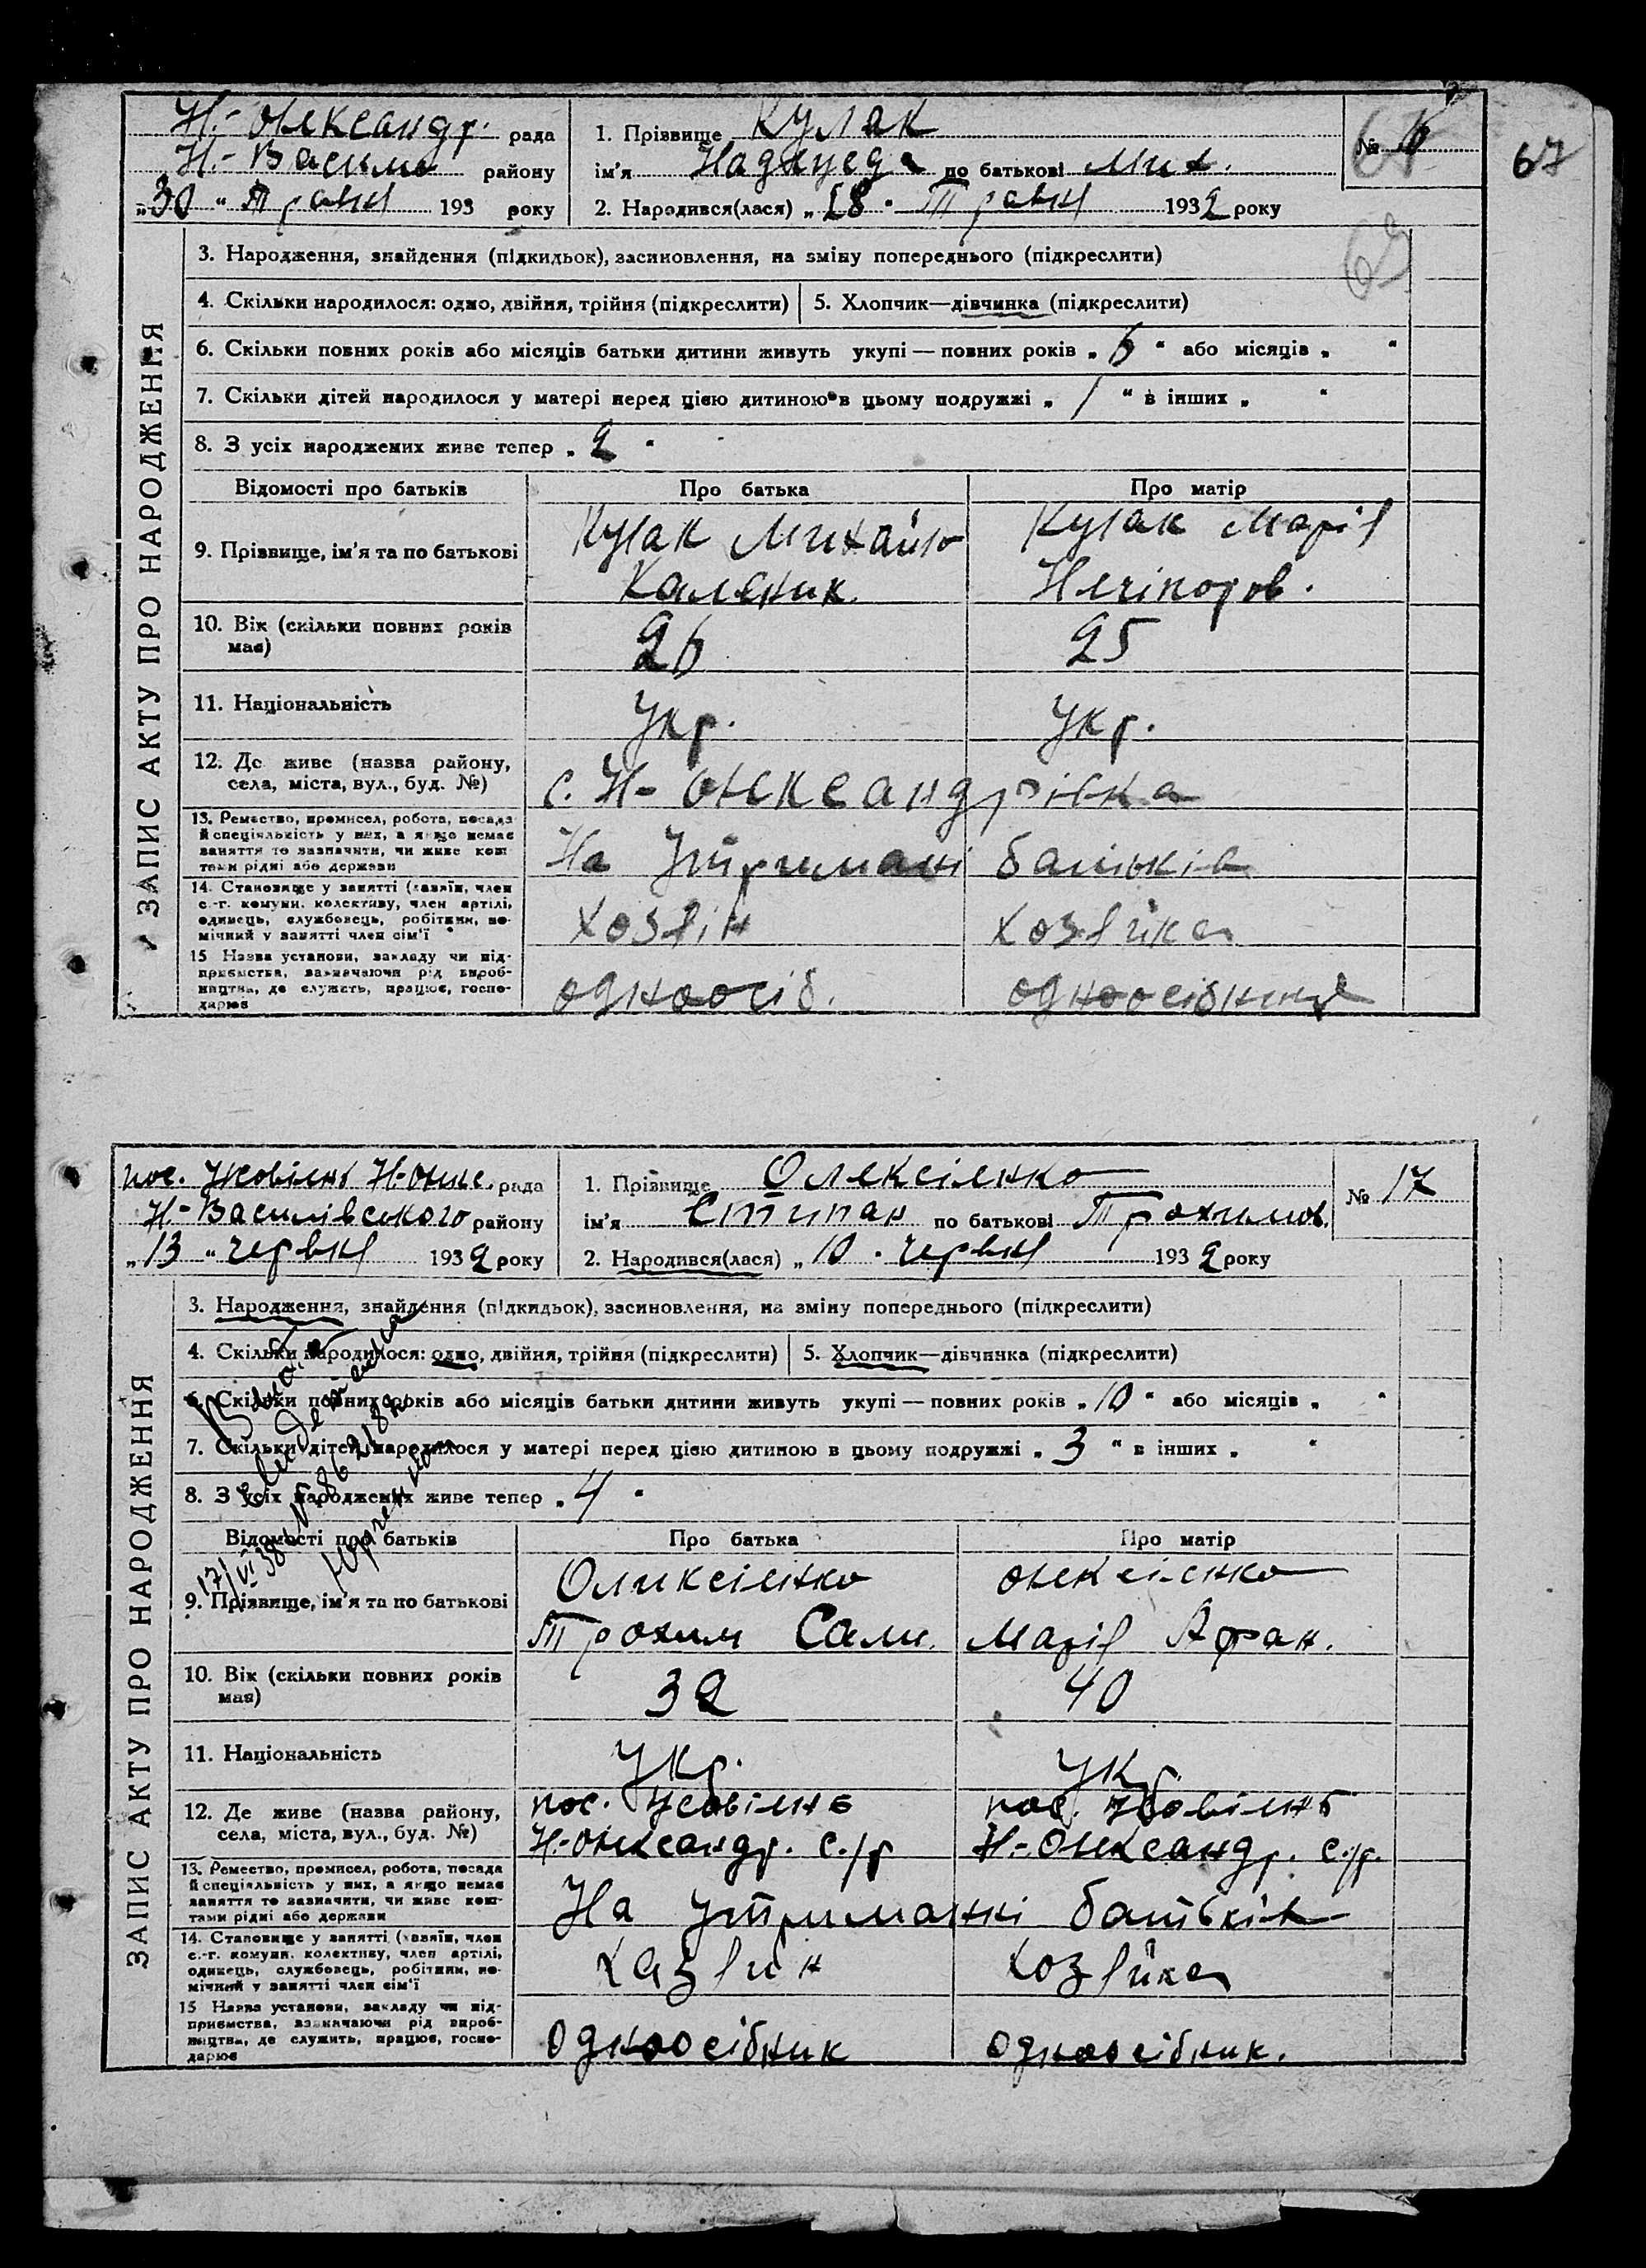 Н.-Олександр. рада
Н.-Васильє району
„30 “ Травн 193 року
1. Прізвище Кулак
ім'я по батькові Мих.
2. Народився(лася) „28 “ Травня 1932 року
№
67
67
ЗАПИС АКТУ ПРО НАРОДЖЕННЯ
3. Народження, знайдення (підкидьок), засиновлення, на зміну попереднього (підкреслити)
4. Скільки народилося: одно, двійня, трійня (підкреслити)
5. Хлопчик—дівчинка (підкреслити)
6. Скільки повних років або місяців батьки дитини живуть укупі — повних років „ 6 “ або місяців „ “
7. Скільки дітей народилося у матері перед цією дитиною в цьому подружжі „ 1 “ в інших „ “
8. З усіх народжених живе тепер „ 2 “
Відомості про батьків Про батька Про матір
9. Прізвище, ім'я та по батькові
Кулак Михайло
Каленик.
Кулак Марія
Нечіпоров.
10. Вік (скільки повних років
має)
26 25
11. Національність Укр. Укр.
12. Де живе (назва району,
села, міста, вул., буд. №)
с. Н-Олександрівка
13. Ремество, промисел, робота, посада
й спеціяльність у них, а якщо немає
заняття то зазначити, чи живе кош-
тами рідні або держави
На Утримані батьків
14. Становище у занятті (хазяїн, член
с.-г. комуни, колективу, член артілі,
одинець, службовець, робітник, по-
мічний у занятті член сім'ї
хозяін хозяйка
15 Назва установи, закладу чи під-
приємства, зазначаючи рід вироб-
ництва, де служить, працює, госпо-
дарює
одноосіб. одноосібниця
пос. Н-Олек. рада
Н.-Василівського району
„13 “ червня 1932 року
1. Прізвище Олексієнко
ім'я Стипан по батькові Трохимов.
2. Народився(лася) „ 10 “ червня 1932 року
№ 17
ЗАПИС АКТУ ПРО НАРОДЖЕННЯ
3. Народження, знайдення (підкидьок), засиновлення, на зміну попереднього (підкреслити)
4. Скільки народилося: одно, двійня, трійня (підкреслити)
5. Хлопчик—дівчинка (підкреслити)
6. Скільки повних років або місяців батьки дитини живуть укупі — повних років „ 10 “ або місяців „ “
7. Скільки дітей народилося у матері перед цією дитиною в цьому подружжі „ 3 “ в інших „ “
8. З усіх народжених живе тепер „ 4 “
17/VI 38
Відомості про батьків Про батька Про матір
9. Прізвище, ім'я та по батькові
Оликсієнко
Трохим Сам.
Олексієнко
Марія Афан.
10. Вік (скільки повних років
має)
32 40
11. Національність Укр. Укр.
12. Де живе (назва району,
села, міста, вул., буд. №)
пос.
Н-Олександр. с./р
пос.
Н.-Олександр. с./р.
13. Ремество, промисел, робота, посада
й спеціяльність у них, а якщо немає
заняття то зазначити, чи живе кош-
тами рідні або держави
На утриманні батьків
14. Становище у занятті (хазяїн, член
с.-г. комуни, колективу, член артілі,
одинець, службовець, робітник, по-
мічний у занятті член сім'ї
хазяин хозяйка
15 Назва установи, закладу чи під-
приємства, зазначаючи рід вироб-
ництва, де служить, працює, госпо-
дарює
Одноосібник одноосібник.